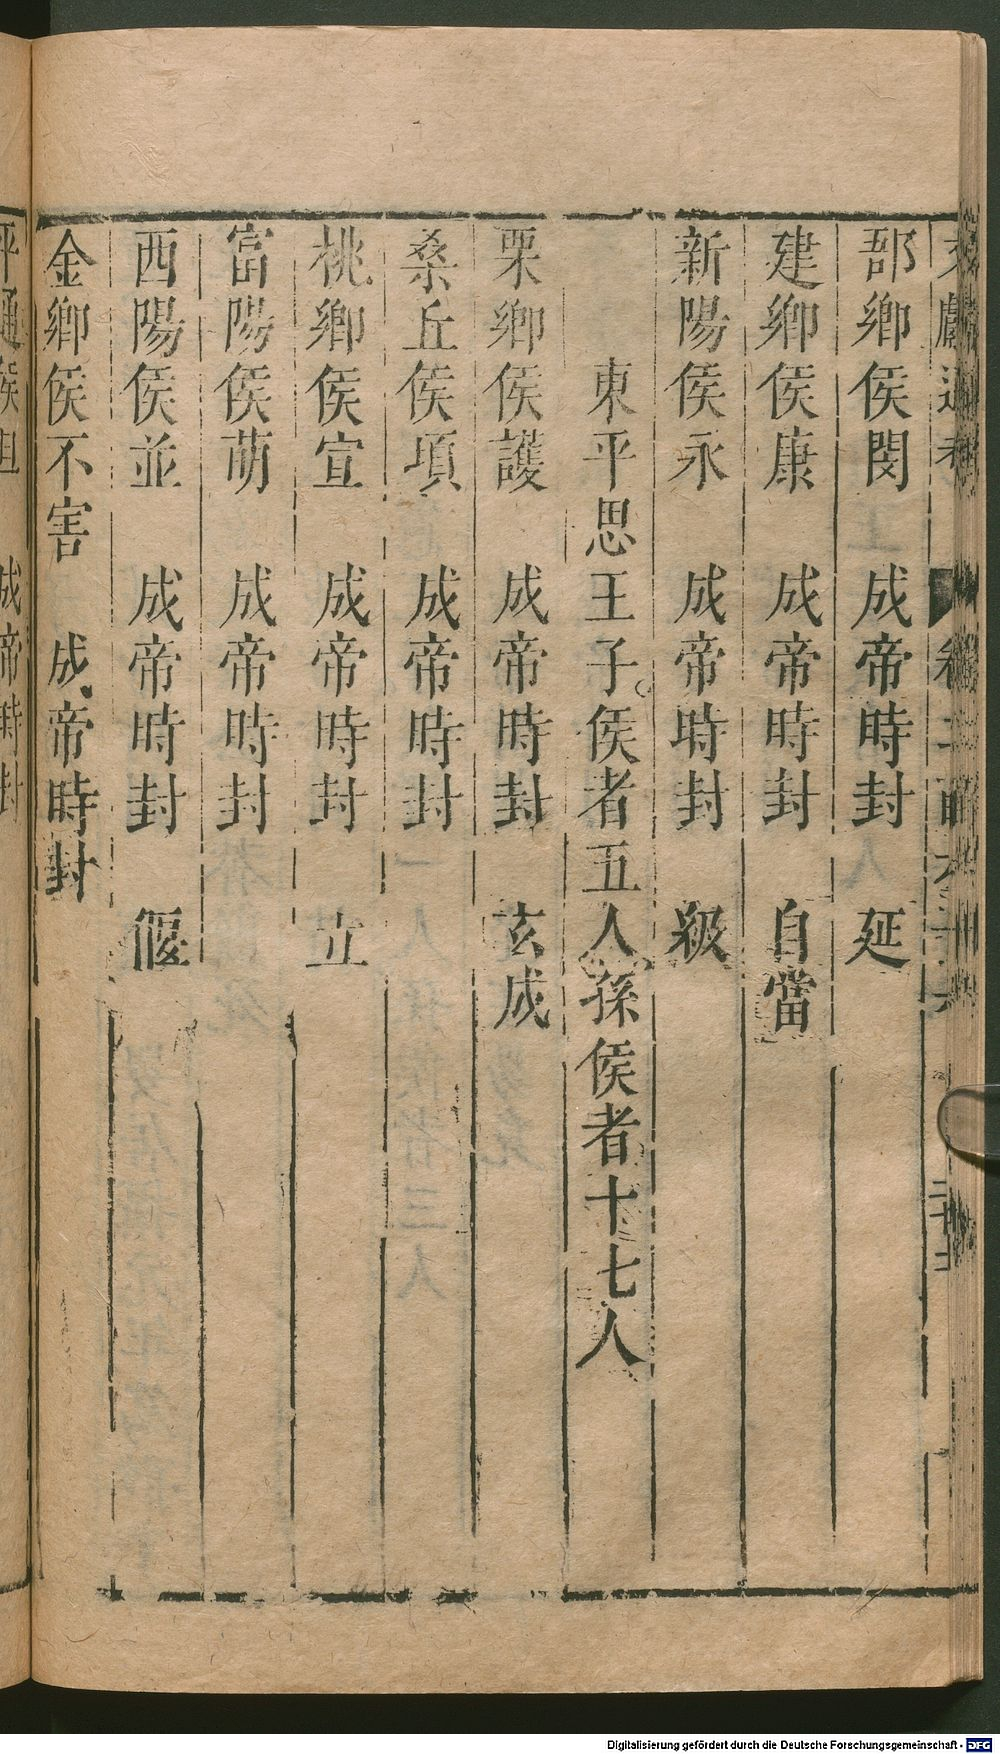 郚鄉侯閔　成帝時封　延
建鄉侯康　成帝時封　自當
新陽侯永　成帝時封　級
東平思王子侯者五人孫侯者十七人
栗鄉侯護　成帝時封　玄成
桑丘侯頃　成帝時封
桃鄉侯宣　成帝時封　立
富陽侯萌　成帝時封
西陽侯並　成帝時封　偃
金鄉侯不害　成帝時封
平通侯旦　成帝時封
Digitalisierung gefördert durch die Deutsche Forschungsgemeinschaft - DFG